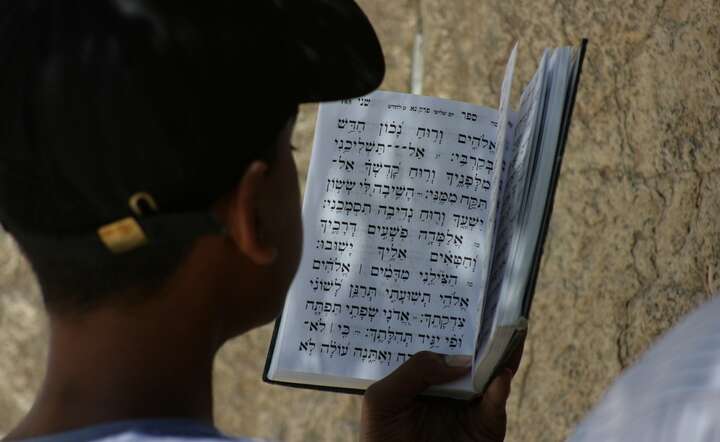 ספר יום שלישי פרק נא
אֱלֹהִים וְרוּחַ נָכוֹן חַדֵּשׁ
בְּקִרְבִּי׃ אַל־תַּשְׁלִיכֵנִי
מִלְּפָנֶיךָ וְרוּחַ קָדְשְׁךָ אַל־
תִּקַּח מִמֶּנִּי׃ הָשִׁיבָה לִּי שְׂשׂוֹן
יִשְׁעֶךָ וְרוּחַ נְדִיבָה תִסְמְכֵנִי׃
אֲלַמְּדָה פֹשְׁעִים דְּרָכֶיךָ
וְחַטָּאִים אֵלֶיךָ יָשׁוּבוּ׃
הַצִּילֵנִי מִדָּמִים ׀ אֱלֹהִים
אֱלֹהֵי תְּשׁוּעָתִי תְּרַנֵּן לְשׁוֹנִי
צִדְקָתֶךָ׃ אֲדֹנָי שְׂפָתַי תִּפְתָּח
וּפִי יַגִּיד תְּהִלָּתֶךָ׃ כִּי ׀ לֹא־
וְאֶתֵּנָה עוֹלָה לֹא